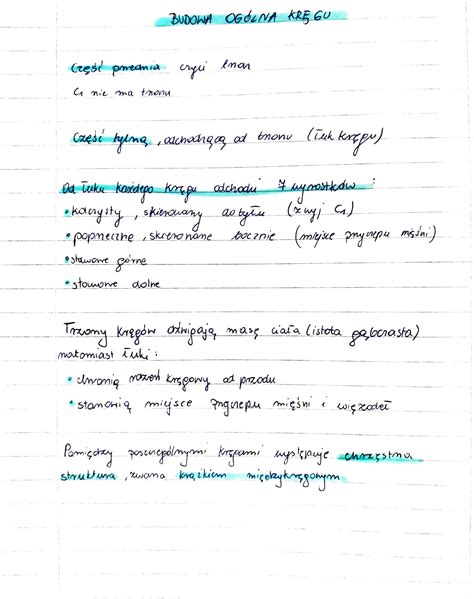 BUDOWA OGÓLNA KRĘGU
Część przednia czyli trzon
C1 nie ma trzonu
Część tylna, odchodzącą od trzonu (łuk kręgu)
Od łuku każdego kręgu odchodzi 7 wyrostków:
• kolczysty, skierowany do tyłu (zwyj C1)
• poprzeczne, skierowane bocznie (miejsce przyczepu mięśni)
• stawowe górne
• stawowe dolne
Trzony kręgów dźwigają masę ciała (istota gąbczasta)
natomiast łuki:
• chronią rdzeń kręgowy od przodu
• stanowią miejsce przyczepu mięśni i więzadeł
Pomiędzy poszczególnymi kręgami występuje chrzęstna
struktura, zwana krążkiem międzykręgowym